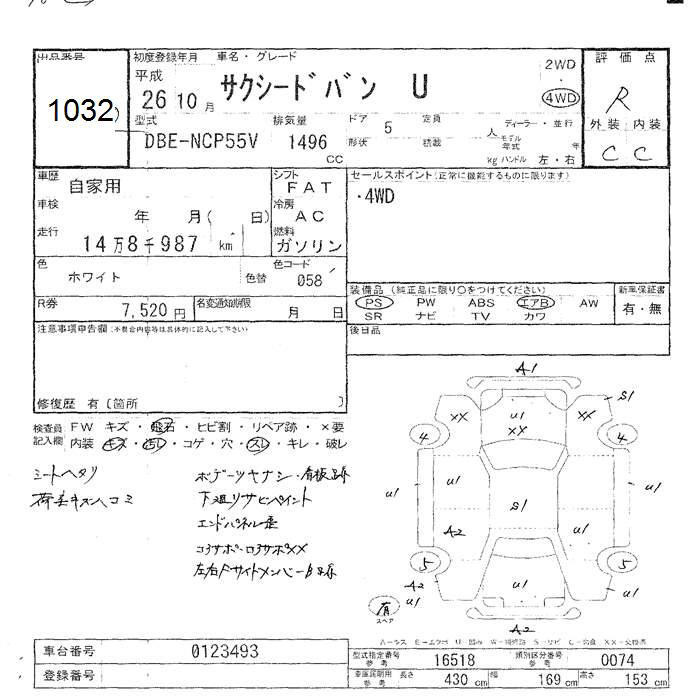 出品番号 初度登録年月 車名・グレード 2WD 評価点
平成
サクシードバン U
26 10 月 4WD R
1032
型式 排気量 ドア 5 定員 ディーラー・並行 外装 内装
DBE-NCP55V 1496 CC 形状 積載 人 モデル年式 年
kg ハンドル 左・右 C C
車歴 自家用 シフト FAT セールスポイント(正常に機能するものに限ります)
車検 年 月( 日) 冷房 AC ・4WD
走行 14万8千987 km 燃料 ガソリン
色 ホワイト 色替 色コード 058
装備品 (純正品に限り○をつけてください) 新車保証書
PS PW ABS エアB AW 有・無
SR ナビ TV カワ
R券 7,520円 名変通知期限 月 日
後日品
注意事項申告欄(不具合内容等は具体的に記入して下さい)
修復歴 有〔箇所 〕
検査員記入欄 FW キズ・飛石・ヒビ割・リペア跡・×要
内装・キズ・汚レ・コゲ・穴・スレ・キレ・破レ
シートヘタリ
荷室キズヘコミ
ボデーツヤナシ・看板跡
下廻りサビペイント
エンドパネル歪
コアサポ・ロアサポXX
左右Fサイドメンバー
A1
S1
XX U1 XX
XX
4 4
U1 U1 U1
S1
A2 U1
5 5
A2 U1
U1 U1
有
スペア
A2
車台番号 0123493
登録番号
型式指定番号 参考 16518 類別区分番号 参考 0074
長さ 430 cm 幅 169 cm 高さ 153 cm